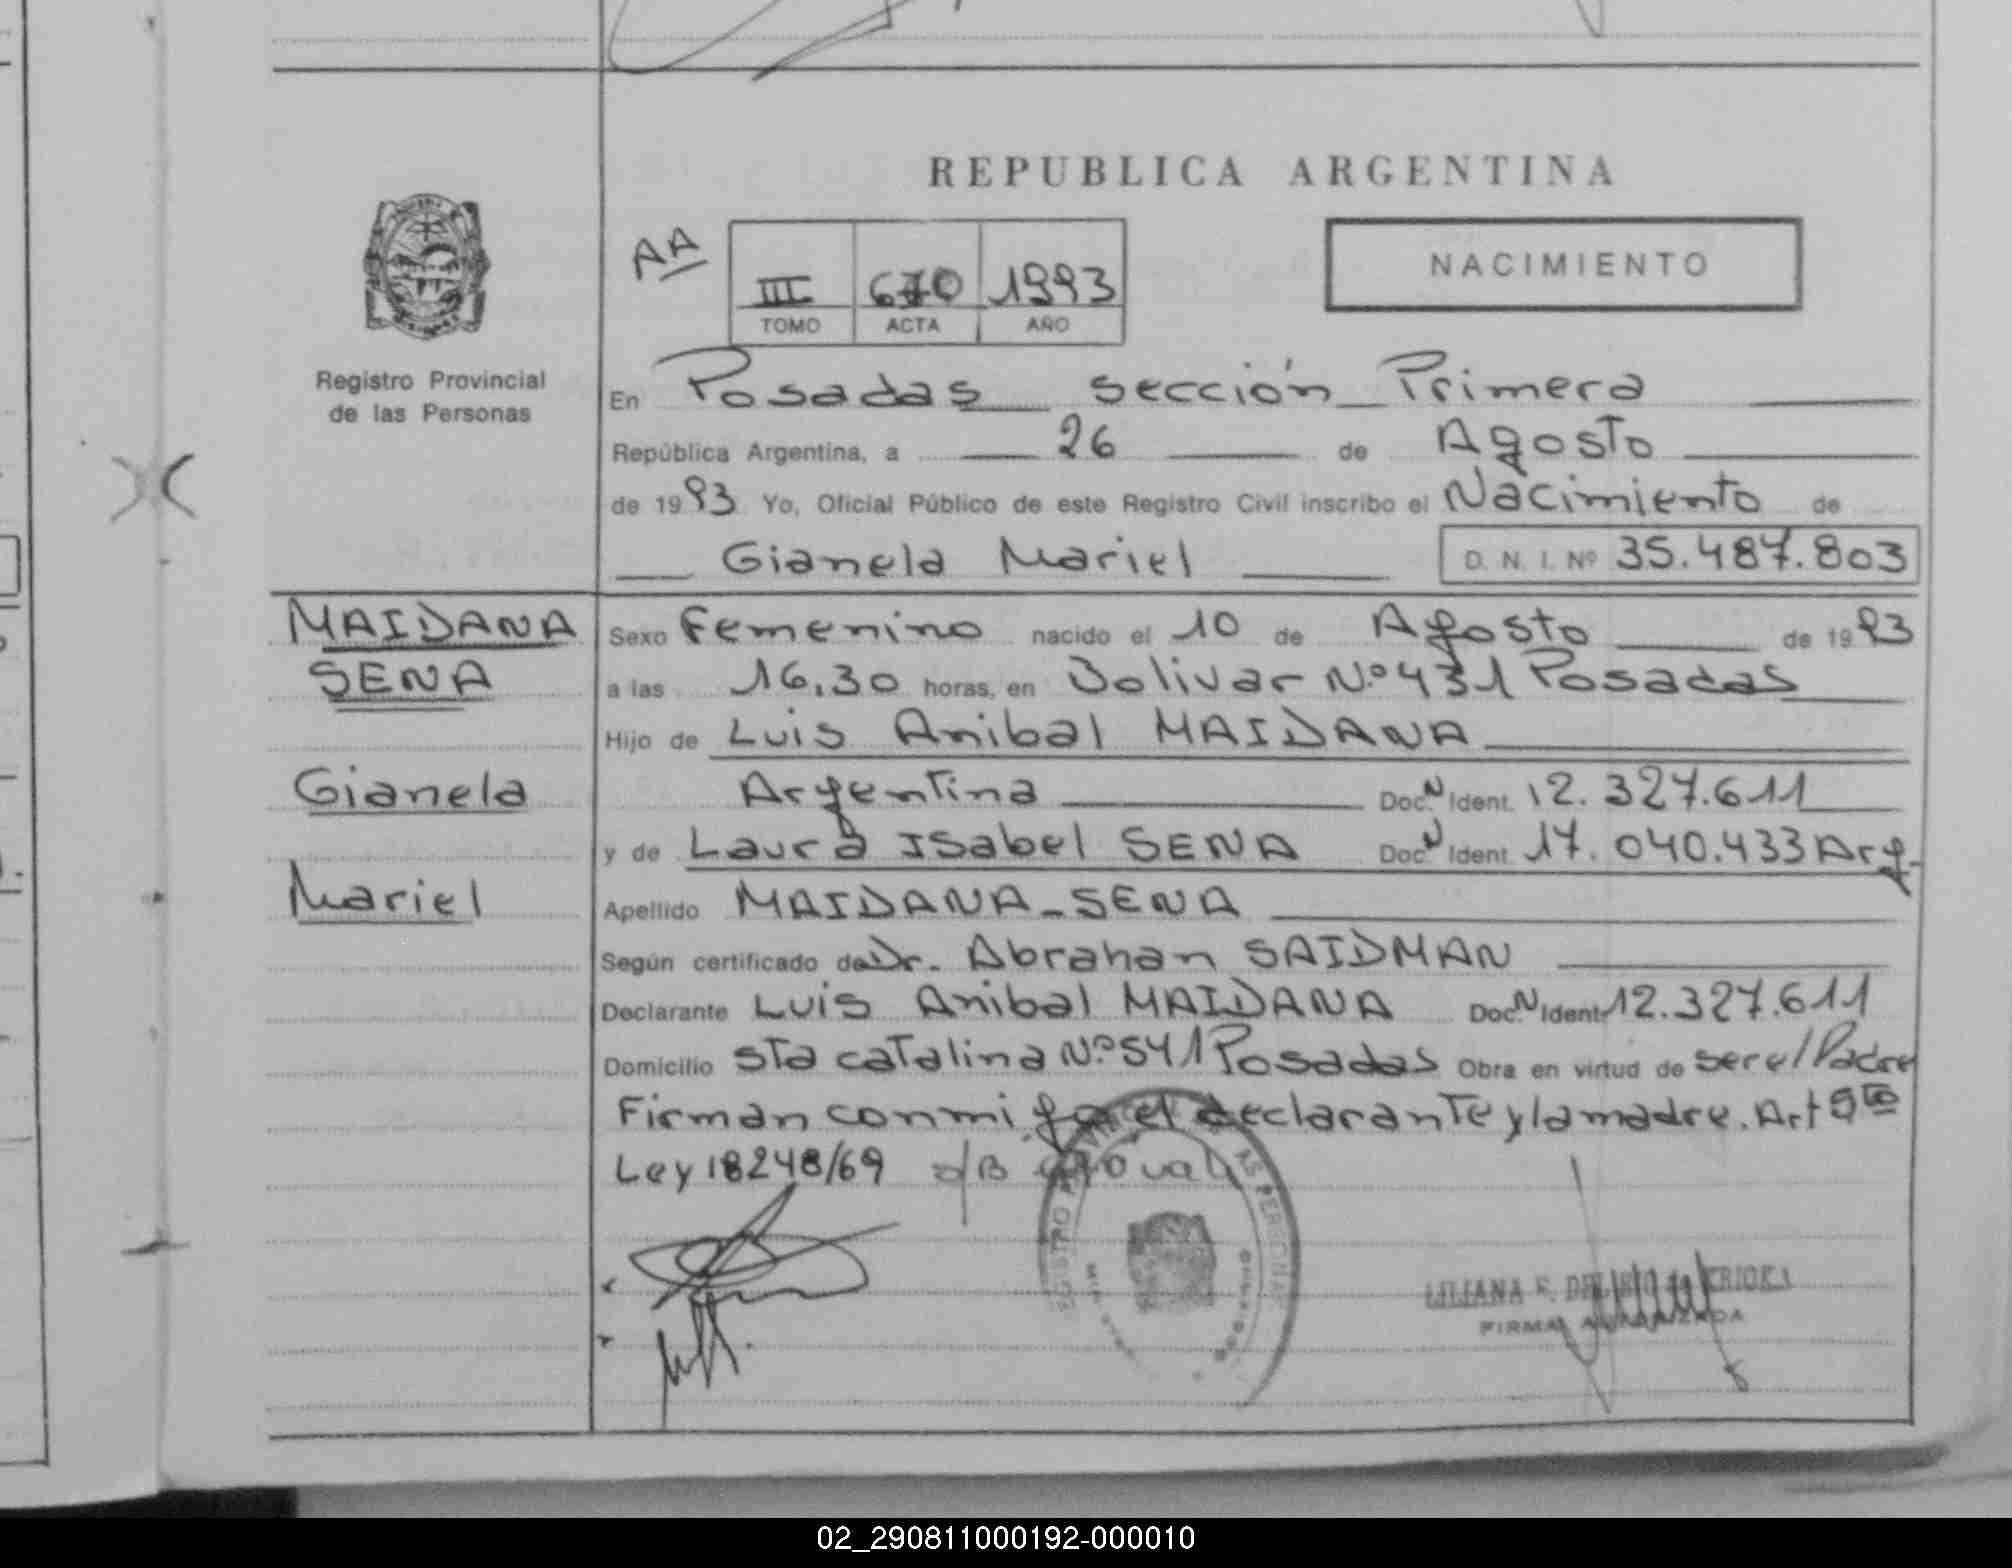 REPUBLICA ARGENTINA
AA
III 670 1993
TOMO ACTA AÑO
NACIMIENTO
Registro Provincial
de las Personas
En Posadas sección Primera
República Argentina, a 26 de Agosto
de 1993 Yo, Oficial Público de este Registro Civil inscribo el Nacimiento de
Gianela Mariel D. N. I. Nº 35.487.803
MAIDANA
SENA
Gianela
Mariel
Sexo Femenino nacido el 10 de Agosto de 1993
a las 16,30 horas, en Bolivar Nº 431 Posadas
Hijo de Luis Anibal MAIDANA
Argentina Doc. N Ident. 12.327.611
y de Laura Isabel SENA Doc. N Ident 17.040.433 Arg.
Apellido MAIDANA_SENA
Según certificado de Dr. Abrahan SAIDMAN
Declarante Luis Anibal MAIDANA Doc. N Ident. 12.327.611
Domicilio Sta catalina Nº 541 Posadas Obra en virtud de ser el Padre
Firman conmigo el declarante y la madre. Art 5to
Ley 18248/69
LILIANA
FIRMA AUTORIZADA
02_290811000192-000010